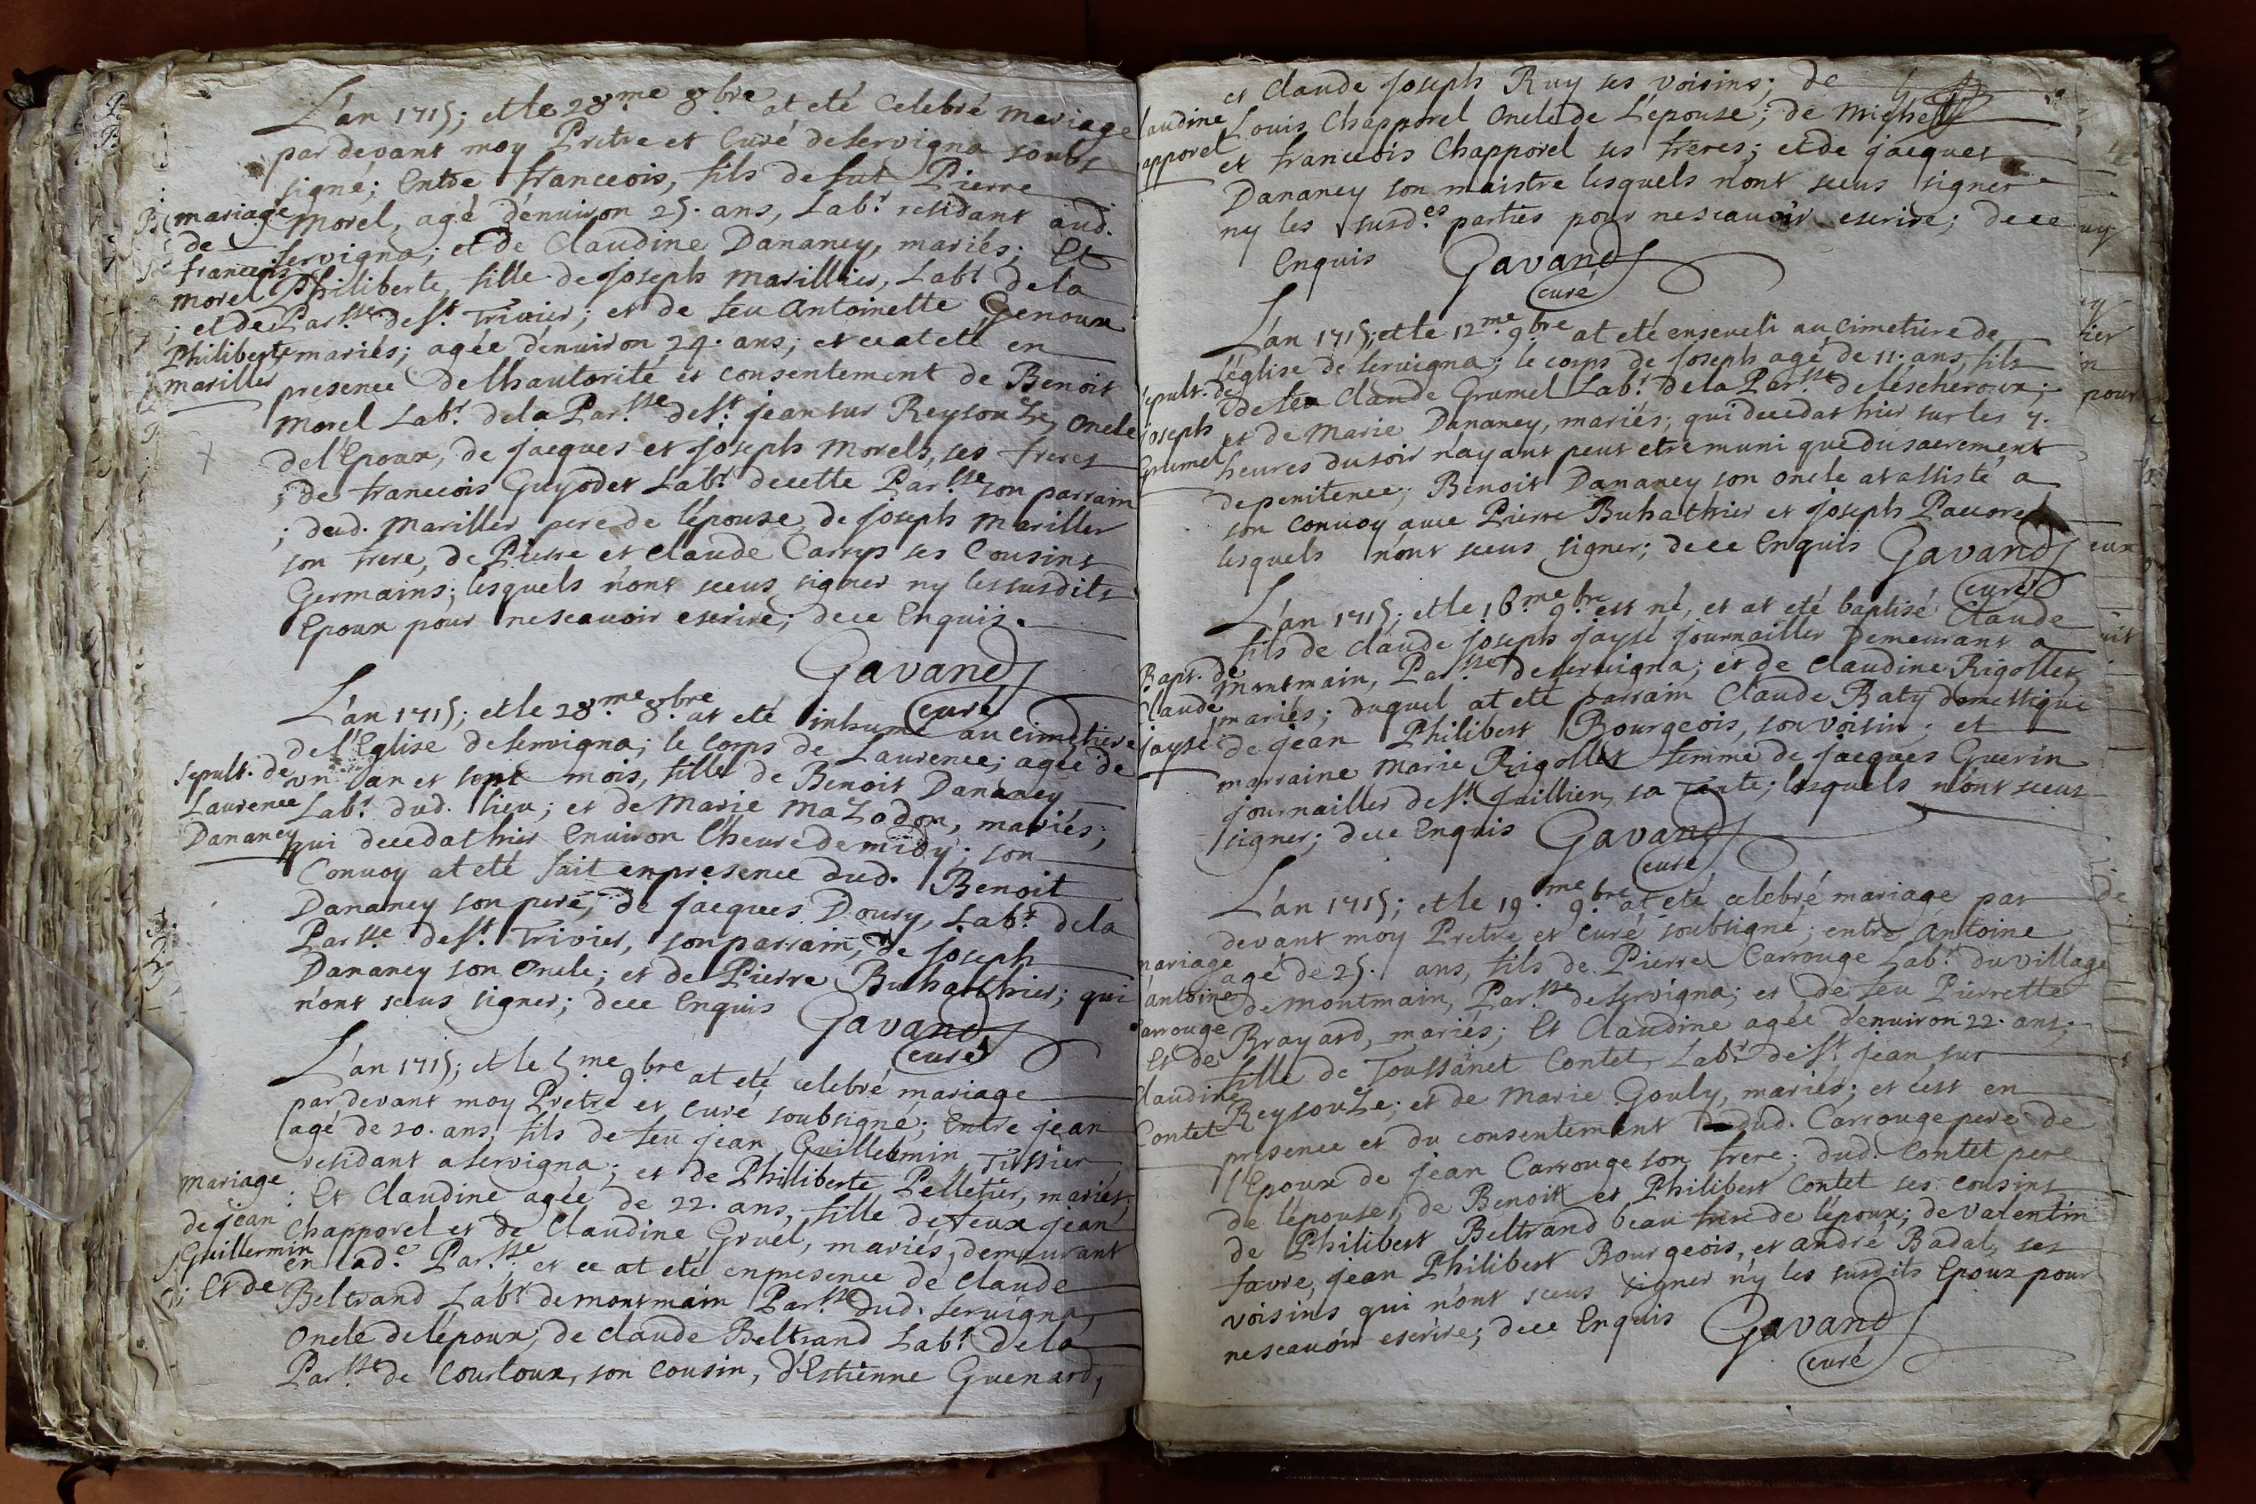 L'an 1715; et le 28.me 8.bre at eté Celebré mariage
par devant moy Pretre et Curé de servigna soubs
signé; Entre francois, fils de fut Pierre
mariage
morel, agé d'enuiron 25. ans, Lab.r residant aud.
de
servigna; et de Claudine Dananey, mariés; Et
francois
Philiberte, fille de joseph marillier, Lab.r de la
morel
; et de
Par.sse de S.t Trivier; et de feu Antoinette Genoux
Philiberte
mariés; agée d'enuiron 24. ans; et ce at eté en
mariller
presence de lhautorité et consentement de Benoit
morel Lab.r de la Par.sse de S.t jean sur ReysouZe, oncle
de l'Epoux, de jacques et joseph morels, ses freres
; de francois Guyodet Lab.r de cette Par.sse son parrain
; dud. mariller pere de l'épouze, de joseph mariller
son frere, de Pierre et claude Carrys ses Cousins
Germains; lesquels n'ont sceus signer ny les susdits
Epoux pour ne scauoir escrire; de ce Enquis.
Gavand
curé
L'an 1715; et le 28.me 8.bre at eté inhumé au cimetiere
de l'Eglise de servigna; le corps de Laurence; agée de
sepult. de
un an et sept mois, fille de Benoit Dananey
Laurence
Lab.r dud. lieu; et de Marie MaZodon, mariés;
Dananey
qui deceda hier Enuiron l'heure de midy; son
Conuoy at eté fait en presence dud. Benoit
Dananey son pere, de jacques Doury, Lab.r de la
Par.sse de S.t Trivier, son parrain, de joseph
Dananey son Oncle; et de Pierre Buhatthier; qui
n'ont sceus signer; de ce Enquis
Gavand
curé
L'an 1715; et le 5.me 9.bre at eté celebré mariage
par devant moy Pretre et curé soubsigné; Entre jean
agé de 20. ans, fils de feu jean Guillermin Tissier
residant a servigna; et de Philiberte Pelletier, mariés;
mariage
: Et Claudine agée de 22. ans, fille de feux jean
de jean
Chapporel et de Claudine Gruel, mariés, demeurant
Guillermin
en lad.e Par.sse et ce at eté en presence de Claude
; Et de
Beltrand Lab.r de montmain Par.sse dud. servigna,
Oncle de lepoux, de claude Beltrand Lab.r de la
Par.sse de Courtoux, son cousin, d'Estienne Guenard,
et Claude joseph Ruy ses voisins; de
laudine
Louis Chapporel Oncle de L'epouse; de michel
apporel
et francois Chapporel ses freres; et de jacques
Dananey son maistre lesquels n'ont sceus signer
ny les susd.es parties pour ne scauoir escrire; de ce
Enquis
Gavand
curé
L'an 1715; et le 12.me 9.bre at eté enseueli au cimetiere de
l'église de seruigna; le corps de joseph agé de 11. ans, fils
sepult. de
de feu claude Grumel Lab.r de la Par.sse de lescheroux;
joseph
et de Marie Dananey, mariés; qui decedat hier sur les 7.
Grumel
heures du soir n'ayant peut etre muni que du sacrement
de penitence; Benoit Dananey son oncle at assisté a
son conuoy auec Pierre Buhatthier et joseph Pauoret
lesquels n'ont sceus signer; de ce Enquis
Gavand
curé
L'an 1715; et le 16.me 9.bre est né, et at eté baptisé Claude
fils de claude joseph jaysé journailler Demeurant a
Bapt. de
montmain, Par.sse de seruigna; et de claudine Rigollet,
Claude
mariés; duquel at eté parrain Claude Raty domestique
jaysé
de jean Philibert Bourgeois, son voisin; et
marraine Marie Rigollet femme de jacques Guerin
journailler de S.t jullien, sa Tante; lesquels n'ont sceus
signer; de ce Enquis
Gavand
curé
L'an 1715; et le 19.me 9.bre at eté celebré mariage par
devant moy Pretre et curé soubsigné; entre Antoine
mariage
agé de 25. ans, fils de Pierre Carrouge Lab.r du village
antoine
de montmain, Par.sse de servigna; et de feu Pierrette
arrouge
Brayard, mariés; Et Claudine agée d'enuiron 22. ans;
Et de
fille de Toussanet Contet, Lab.r de S.t jean sur
laudine
ReysouZe; et de Marie Gouly, mariés; et c'est en
Contet
presence et du consentement dud. Carrouge pere de
l'Epoux de jean Carrouge son frere; dud. Contet pere
de l'épouse, de Benoit et Philibert Contet ses cousins
de Philibert Beltrand beau frere de l'époux; de valentin
favre, jean Philibert Bourgeois, et andré Badal, ses
voisins qui n'ont sceus signer n'y les susdits Epoux pour
ne scauoir escrire; de ce Enquis
Gavand
curé